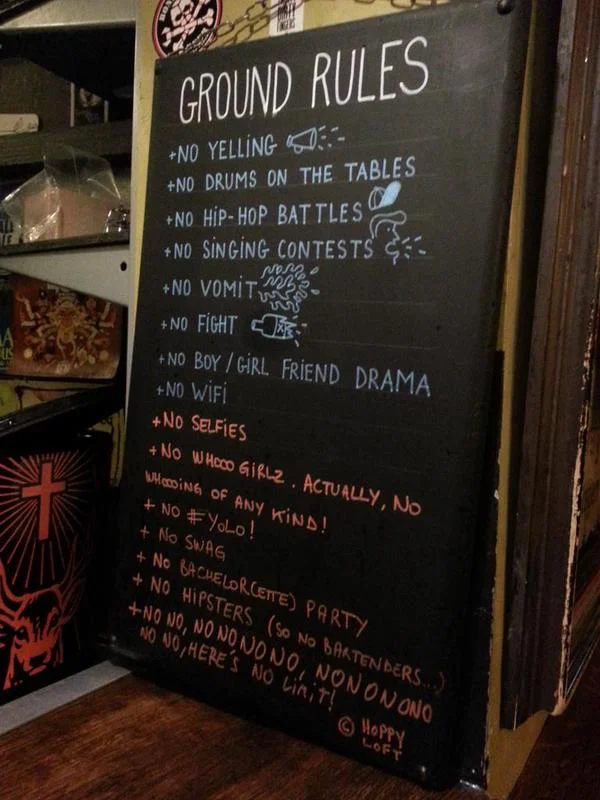 GROUND RULES
+NO YELLING
+NO DRUMS ON THE TABLES
+NO HIP-HOP BATTLES
+NO SINGING CONTESTS
+NO VOMIT
+NO FIGHT
+NO BOY/GIRL FRIEND DRAMA
+NO WIFI
+NO SELFIES
+NO WHOOO GIRLZ. ACTUALLY, NO
WHOOING OF ANY KIND!
+NO #YOLO!
+NO SWAG
+NO BACHELOR(ETTE) PARTY
+NO HIPSTERS (SO NO BARTENDERS...)
+NO NO, NO NO NO NO NO, NO NO NO NO NO
NO NO, HERE'S NO LIMIT!
© HOPPY
LOFT